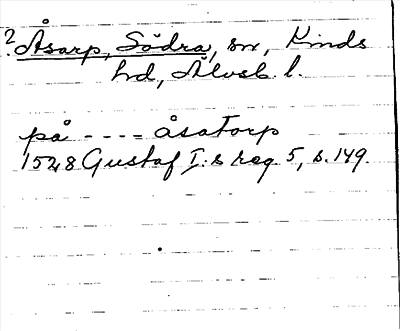 ? Åsarp, Södra, sn, Kinds
hd, Älvsb. l.
på - - - - åsatorp
1528 Gustaf I:s reg 5, s. 149.